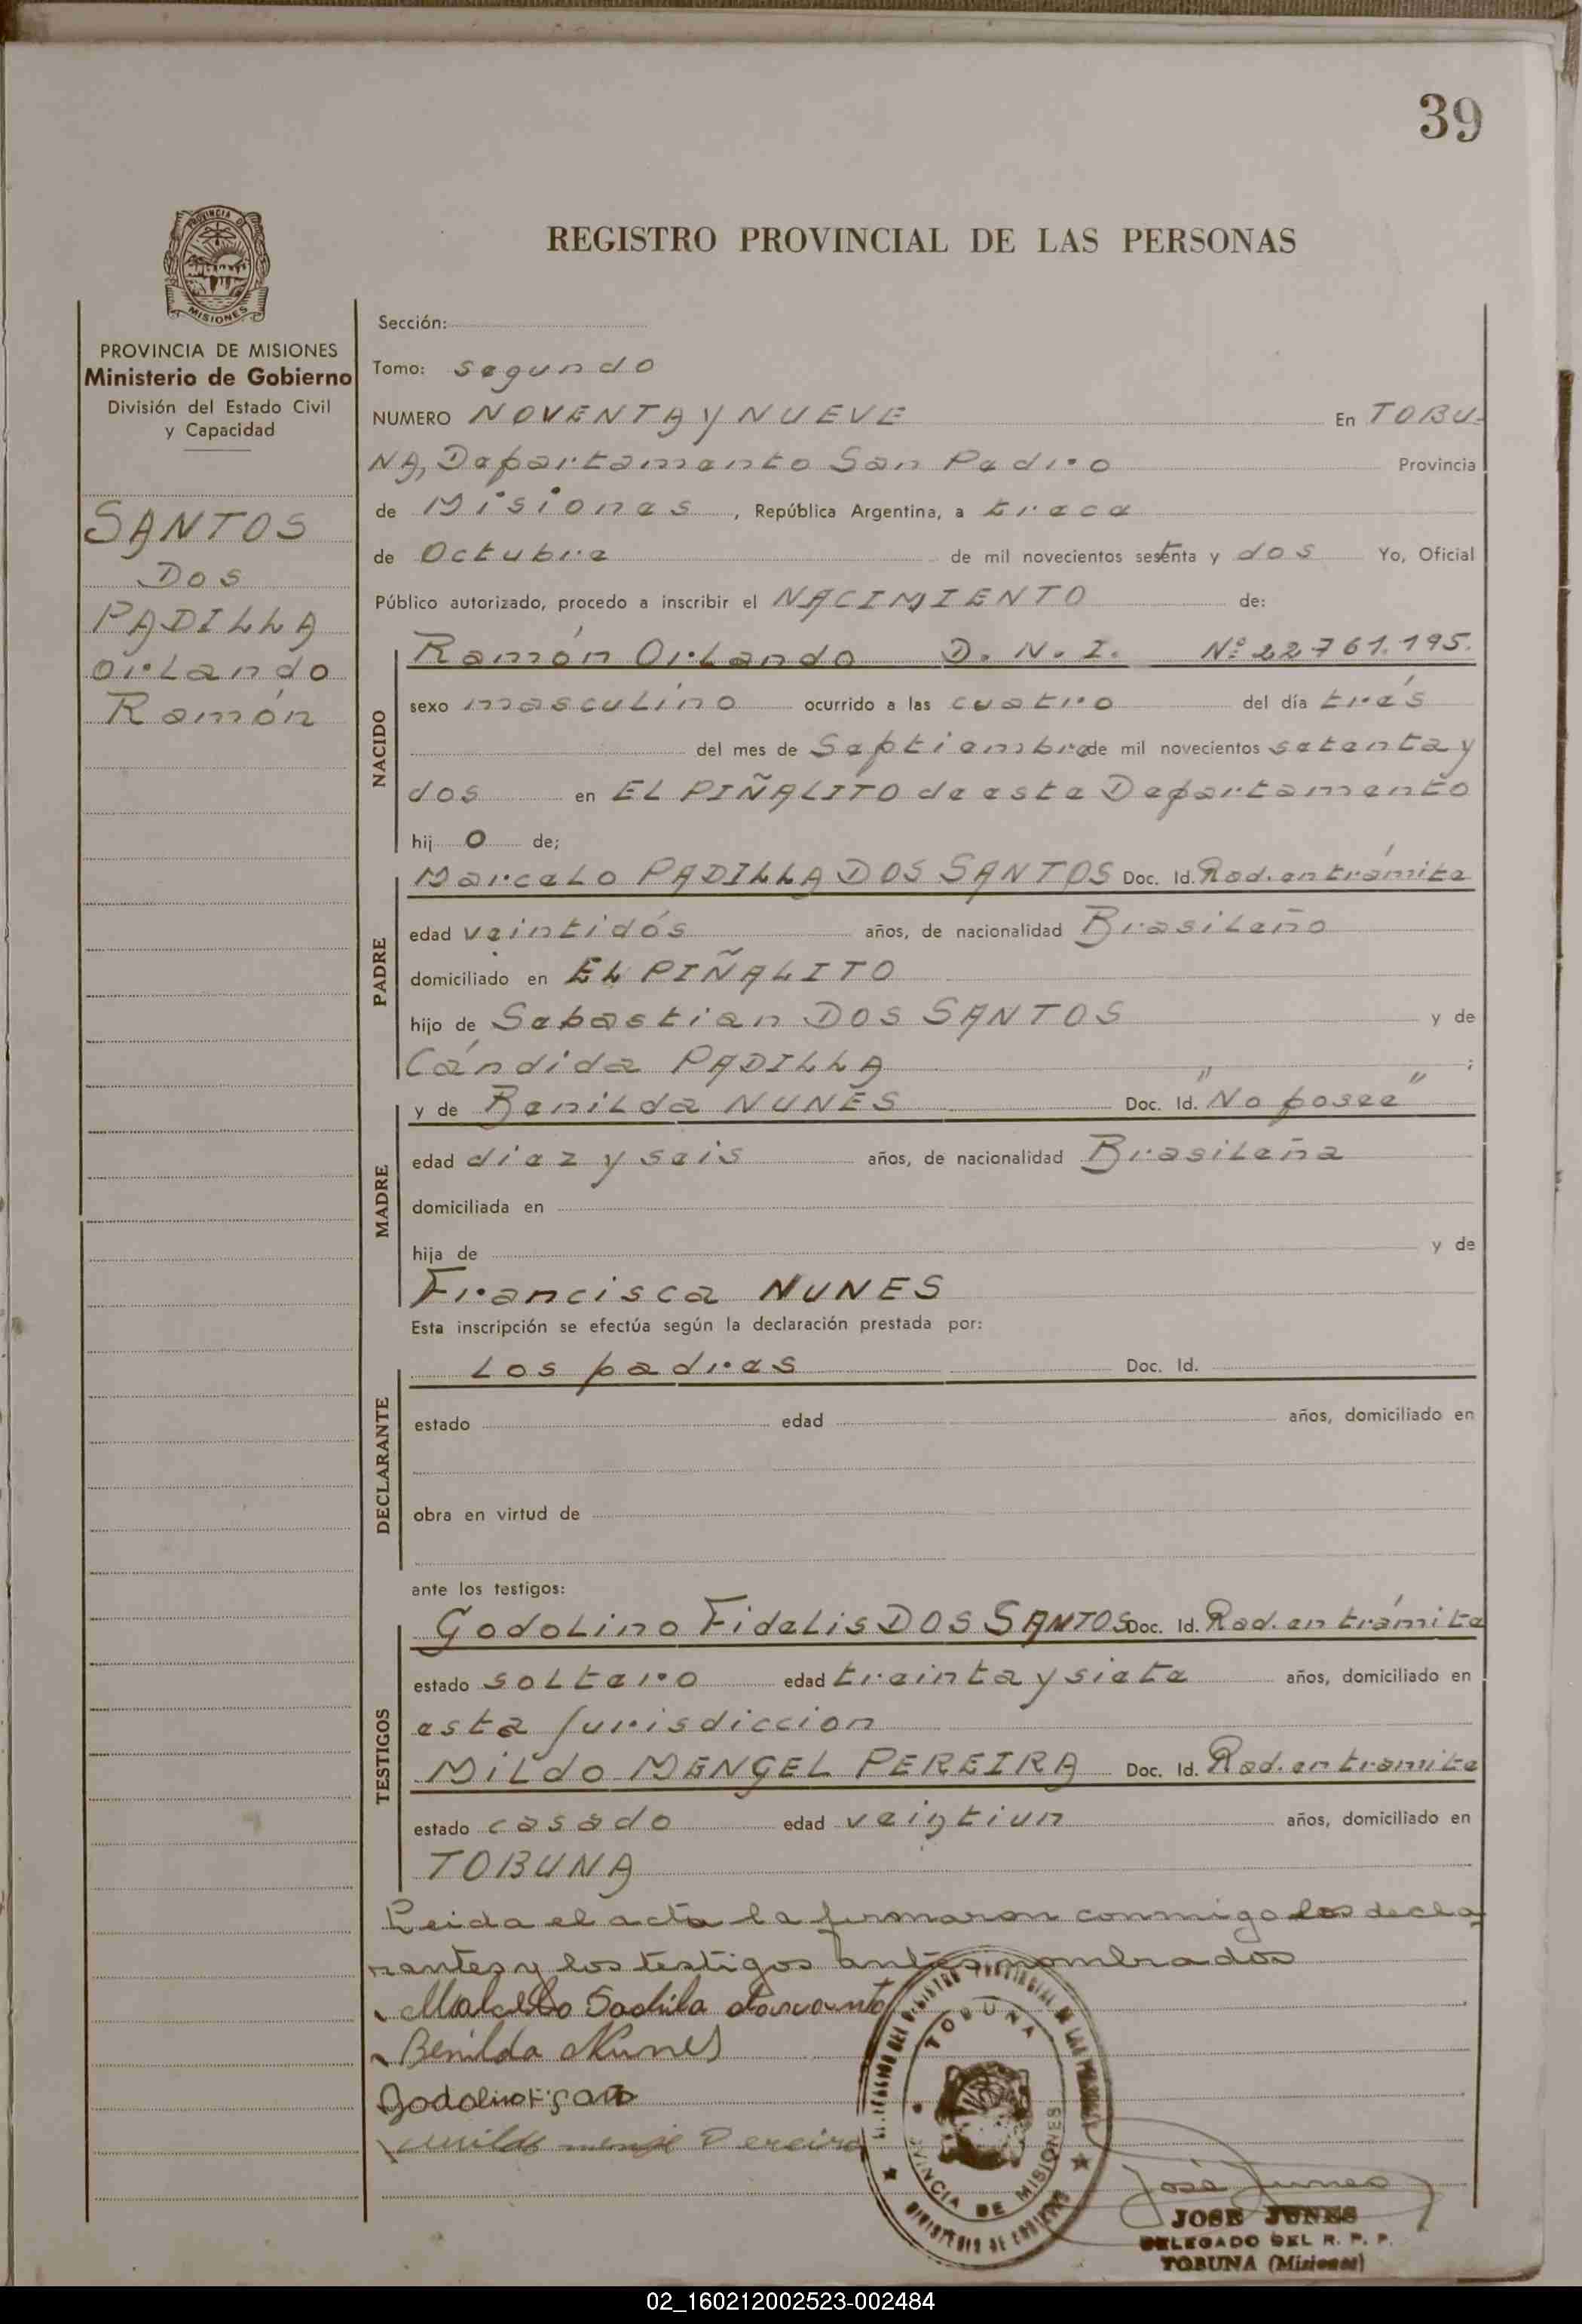 39
REGISTRO PROVINCIAL DE LAS PERSONAS
PROVINCIA DE
MISIONES
PROVINCIA DE MISIONES
Ministerio de Gobierno
División del Estado Civil
y Capacidad
SANTOS
DOS
PADILLA
Orlando
Ramón
Sección:
Tomo: segundo
NUMERO NOVENTA y NUEVE En TOBU-
NA, Departamento San Pedro Provincia
de Misiones, República Argentina, a trece
de Octubre de mil novecientos setenta y dos Yo, Oficial
Público autorizado, procedo a inscribir el NACIMIENTO de:
NACIDO
Ramón Orlando D. N. I. Nº 22761.195.
sexo masculino ocurrido a las cuatro del día trés
del mes de Septiembre de mil novecientos setenta y
dos en EL PIÑALITO de este Departamento
hij o de;
PADRE
Marcelo PADILLA DOS SANTOS Doc. Id. Rad. en trámite
edad veintidós años, de nacionalidad Brasileño
domiciliado en EL PIÑALITO
hijo de Sebastian DOS SANTOS y de
Cándida PADILLA ;
MADRE
y de Benilda NUNES Doc. Id. "No posee"
edad diez y seis años, de nacionalidad Brasileña
domiciliada en
hija de y de
Francisca NUNES
Esta inscripción se efectúa según la declaración prestada por:
DECLARANTE
Los padres Doc. Id.
estado edad años, domiciliado en
obra en virtud de
ante los testigos:
TESTIGOS
Godolino Fidelis DOS SANTOS Doc. Id. Rad. en trámite
estado soltero edad treinta y siete años, domiciliado en
esta jurisdiccion
Mildo MENGEL PEREIRA Doc. Id. Rad. en tramite
estado casado edad veintiun años, domiciliado en
TOBUNA
Leida el acta la firmaron conmigo los decla-
rantes y los testigos antes nombrados
Benilda Nunes
Pereira
TOBUNA
PROVINCIA DE MISIONES
MINISTERIO DE GOBIERNO
José Junes
JOSE JUNES
DELEGADO DEL R. P. P.
TOBUNA (Misiones)
02_160212002523-002484